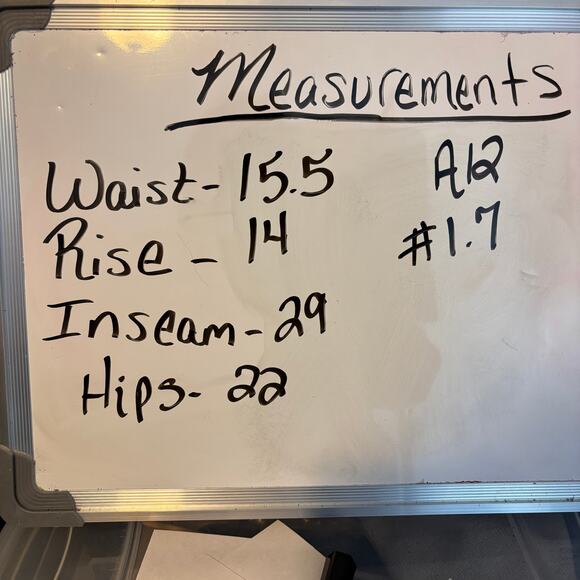 Measurements
Waist- 15.5
Rise - 14
Inseam- 29
Hips- 22
A12
#1.7